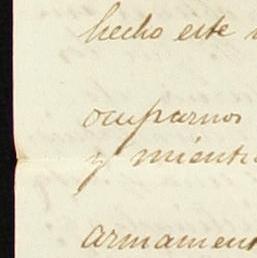 hecho este
ocuparnos
y mientr
armamen